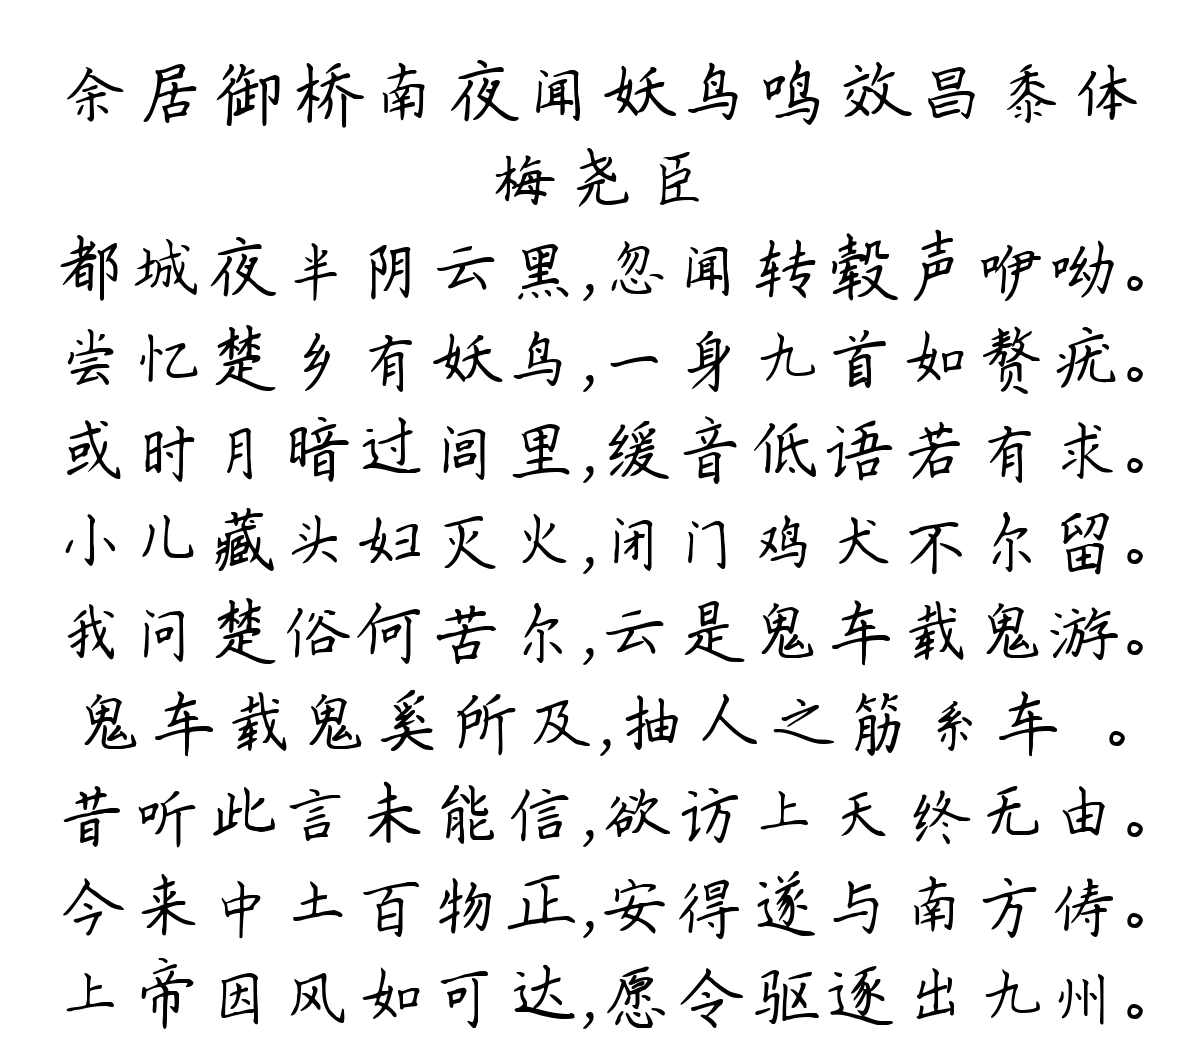 余居御桥南夜闻妖鸟鸣效昌黍体
梅尧臣
都城夜半阴云黑,忽闻转毂声咿呦。
尝忆楚乡有妖鸟,一身九首如赘疣。
或时月暗过闾里,缓音低语若有求。
小儿藏头妇灭火,闭门鸡犬不尔留。
我问楚俗何苦尔,云是鬼车载鬼游。
鬼车载鬼奚所及,抽人之筋系车 。
昔听此言未能信,欲访上天终无由。
今来中土百物正,安得遂与南方俦。
上帝因风如可达,愿令驱逐出九州。